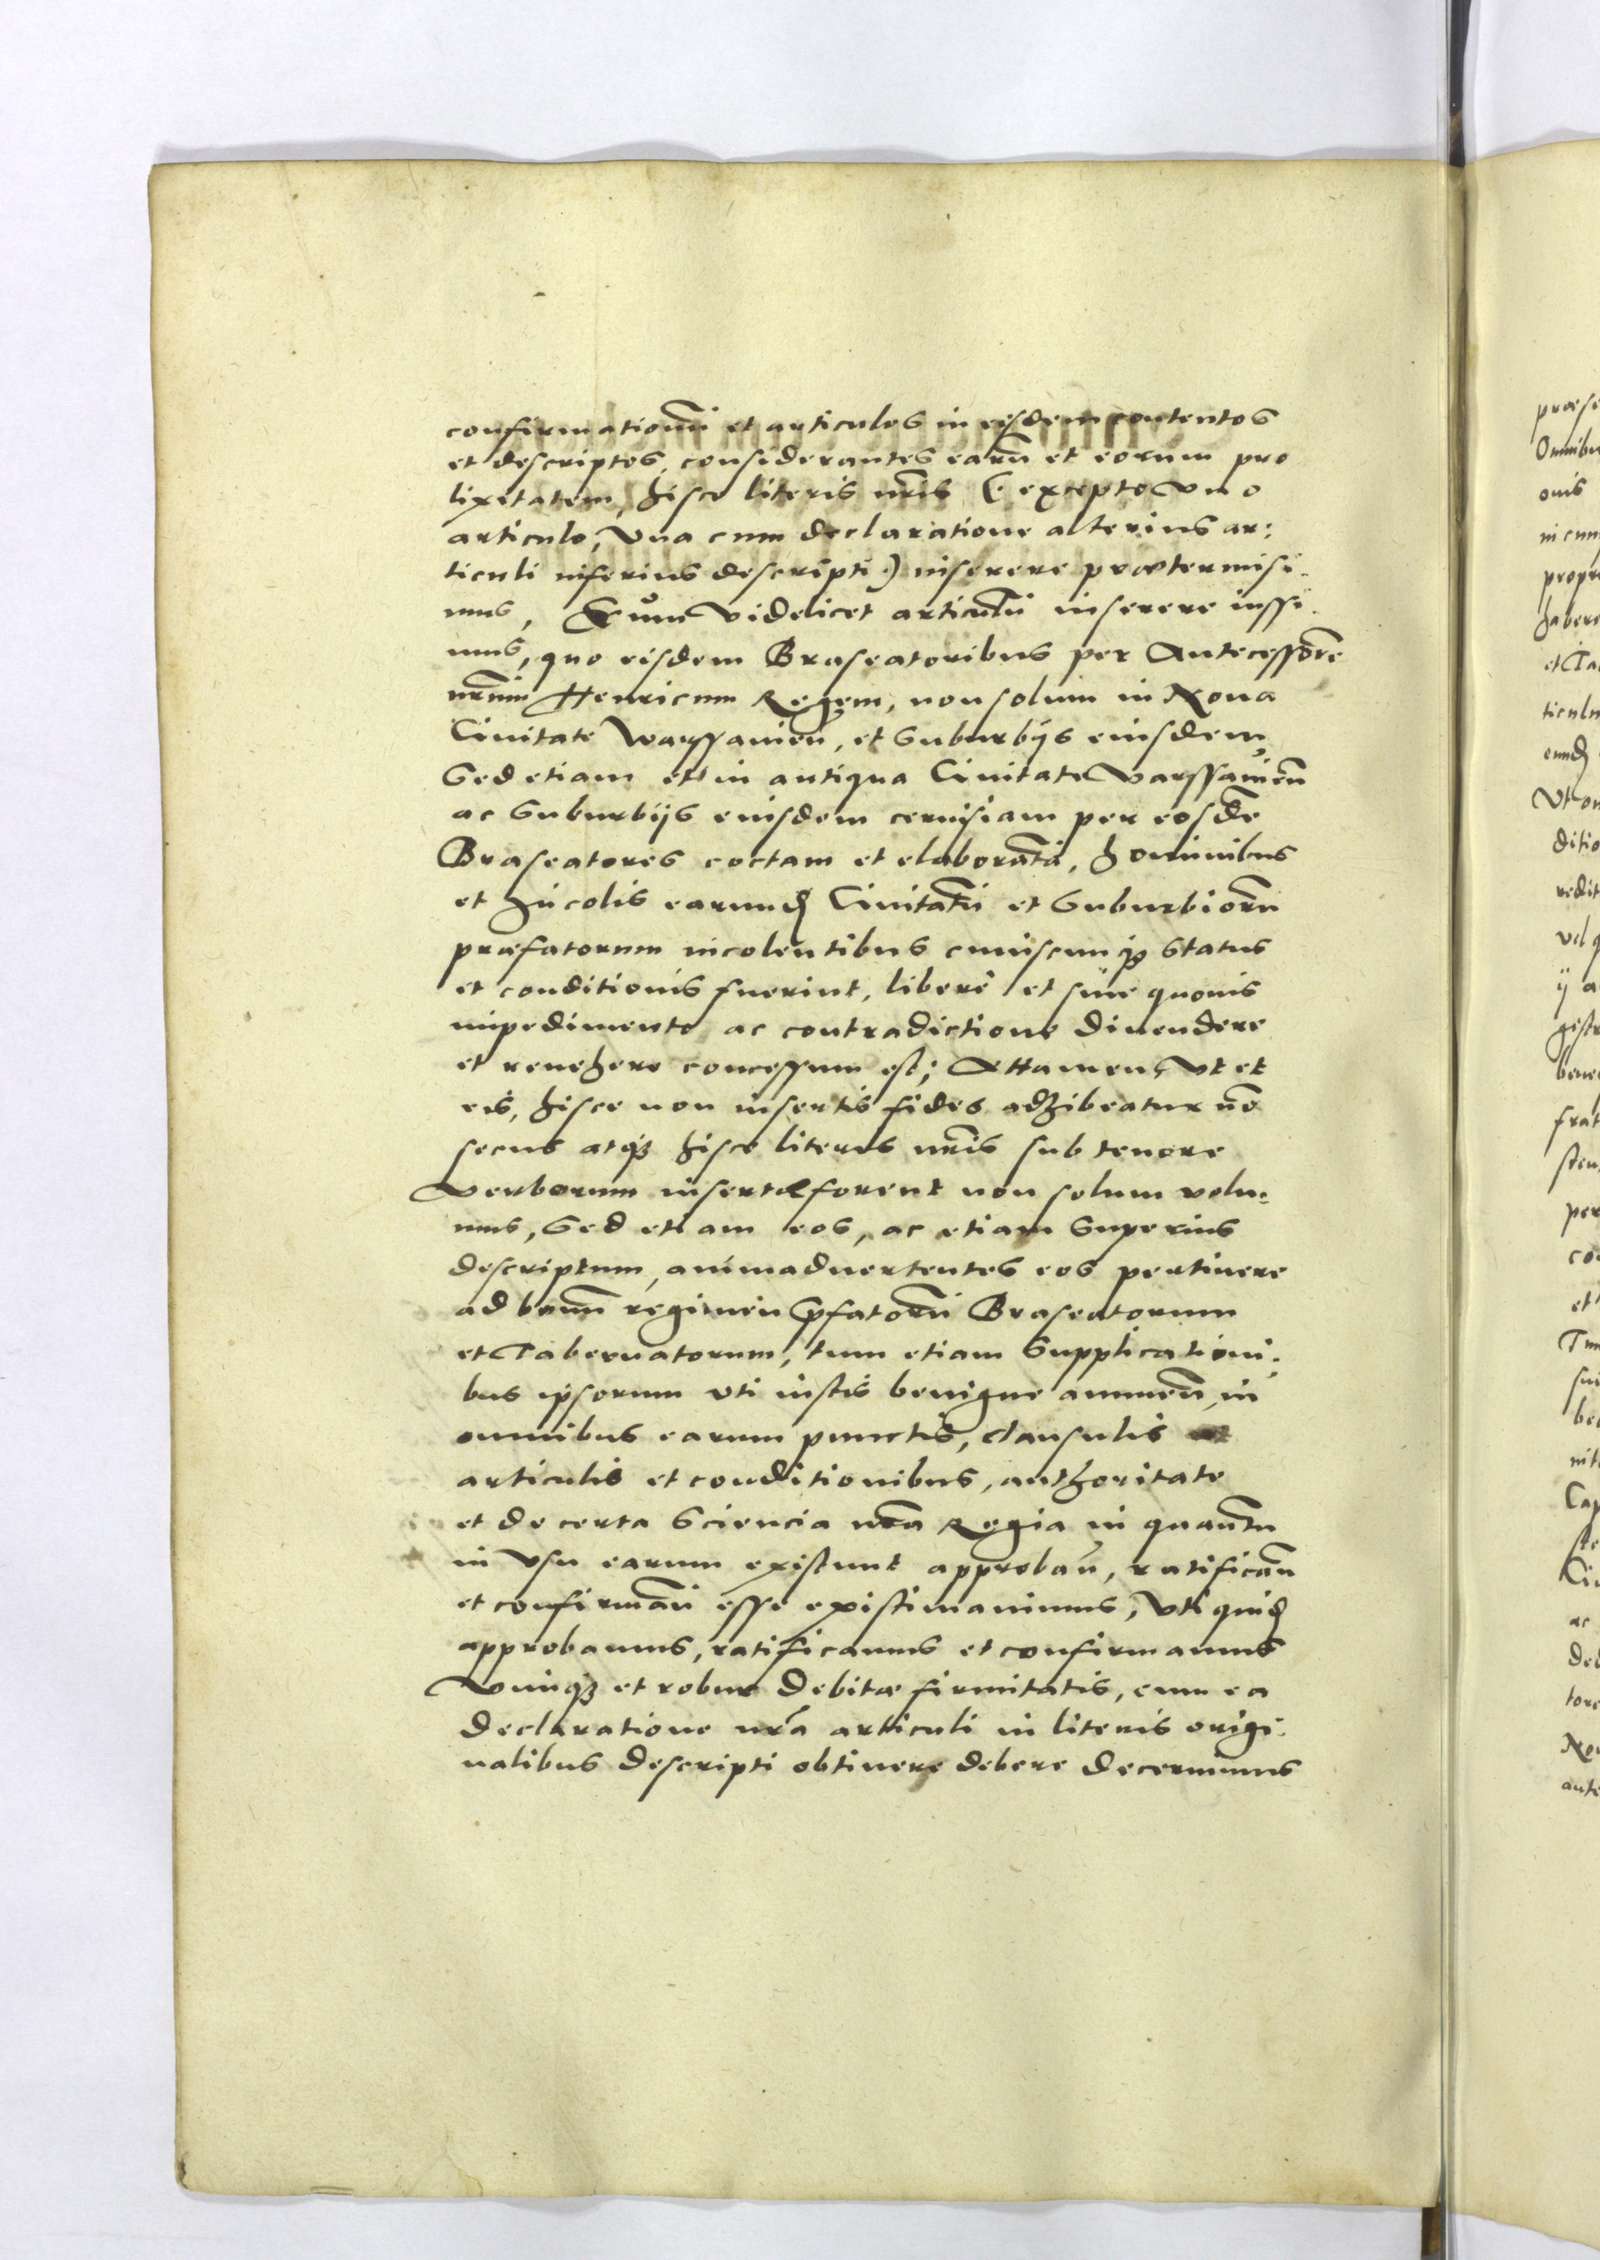 confirmationū et articulos in eisdem contentos
et descriptos, considerantes earū et eorum pro
lixitatem, hisce literis nr̄is (: excepto vno
articulo, vna cum declaratione alterius ar:
ticuli inferius descripti :) inserere prætermisi-
mus, Eum videlicet articulū inserere iussi-
mus, quo eisdem Braseatoribus per Antecessorē
nr̄um Henricum Regem, non solum in Noua
Ciuitate Warssauień, et Suburbijs eiusdem,
Sed etiam et in antiqua Ciuitate Varssauień
ac Suburbijs eiusdem ceruisiam per eosdē
Braseatores coctam et elaboratā, hominibus
et Incolis earund Ciuitatū et Suburbiorū
præfatorum incolentibus cuiuscunq status
et conditionis fuerint, liberè et siue quouis
impedimento ac contradictione diuendere
et reuehere concessum est; Attamen, vt et
eis, hisce non insertis fides adhibeatur nō
secus atq hisce literis nr̄is sub tenore
Verborum insertæ forent non solum volu-
mus, Sed etiam eos, ac etiam Superius
descriptum, animaduertentes eos pertinere
ad bonū regimen pfatorū Braseatorum
et Tabernatorum, tum etiam Supplicationi-
bus ipsorum vti iustis benigne annueń, in
omnibus earum punctis, clausulis
articulis et conditionibus, authoritate
et de certa Sciencia nr̄a Regia in quantū
in vsu earum existunt approbań, ratificań
et confirmań esse existimauimus, vti quid
approbamus, ratificamus et confirmamus
Vimq et robur debitæ firmitatis, cum ea
declaratione nr̄a articuli in literis origi-
nalibus descripti obtinere debere decernimus